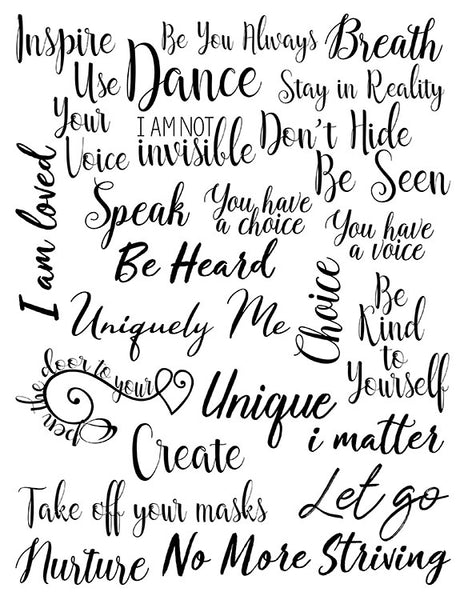 Inspire
Be You Always
Breath
Use Your Voice
Dance
Stay in Reality
I AM NOT
invisible
Don't Hide
Be Seen
I am loved
Speak
You have
a choice
You have
a voice
Be Heard
Choice
Uniquely Me
Be
Kind
to
Yourself
Open the door to your
Unique
i matter
Create
Take off your masks
Let go
Nurture
No More Striving